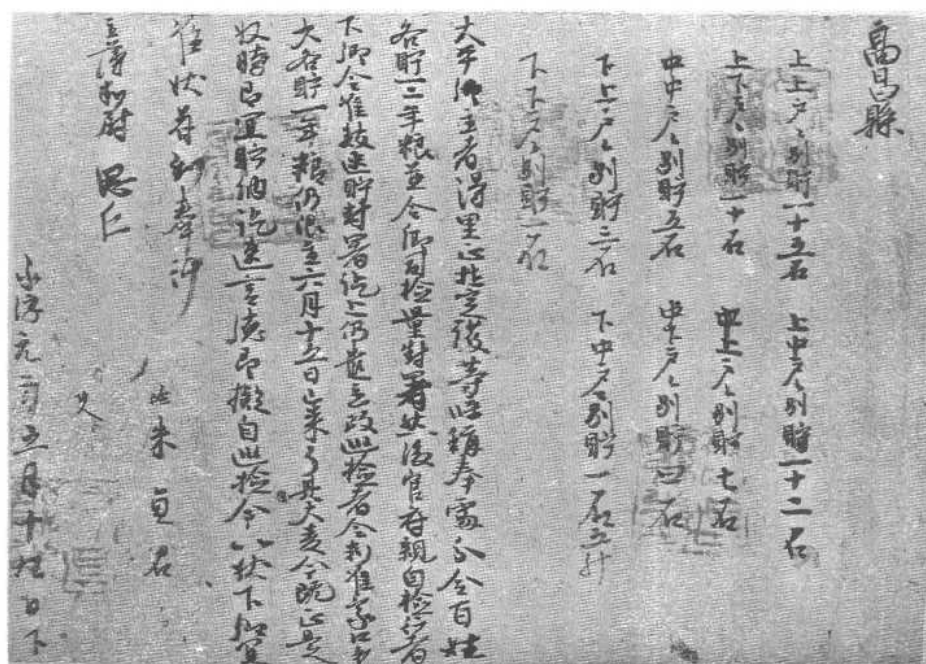 高昌縣
上上戶々別貯一十五石 上中戶々別貯一十二石
上下戶々別貯一十石 中上戶々別貯七石
中中戶々別貯五石 中下戶々別貯四石
下上戶々別貯三石 下中戶々別貯一石五斗
下下戶々別貯一石
太平鄉主者得里正杜定護等牒稱奉處分令百姓
各貯一二年糧並令鄉司檢量封署然後官府親自檢行者
下鄉令准數速貯封署訖上仍遣玄政巡檢者令判准家口多
少各貯一年糧仍限至六月十五日已來了其大麥今既正是
收時即宜貯納訖速言德即擬自巡檢今以狀下鄉宜
准狀符到奉行
主簿判尉 思仁
佐朱貞君
史
永淳元年五月十九日下